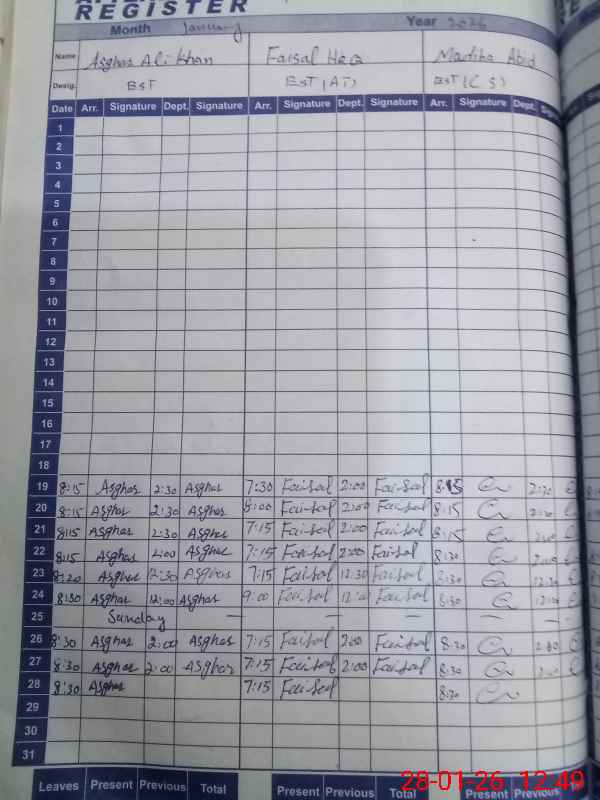 REGISTER
Month January Year 2026
Name Asghar Ali Khan Faisal Haq Abid
Desig. EST EST (AT) EST (C.S)
Date Arr. Signature Dept. Signature Arr. Signature Dept. Signature Arr. Signature Dept.
1
2
3
4
5
6
7
8
9
10
11
12
13
14
15
16
17
18
19 8:15 Asghar 2:30 Asghar 7:30 Faisal 2:00 Faisal 8:15 2:30
20 8:15 Asghar 2:30 Asghar 8:00 Faisal 2:00 Faisal 8:15 2:30
21 8:15 Asghar 2:30 Asghar 7:15 Faisal 2:00 Faisal 8:15 2:00
22 8:15 Asghar 2:00 Asghar 7:15 Faisal 2:00 Faisal 8:30 2:00
23 8:20 Asghar 12:30 Asghar 7:15 Faisal 12:30 Faisal 8:30 12:30
24 8:30 Asghar 12:00 Asghar 9:00 Faisal 12:00 Faisal 8:30 12:00
25 Sunday — — — —
26 8:30 Asghar 2:00 Asghar 7:15 Faisal 2:00 Faisal 8:30 2:00
27 8:30 Asghar 2:00 Asghar 7:15 Faisal 2:00 Faisal 8:30 2:00
28 8:30 Asghar 7:15 Faisal 8:30
29
30
31
Leaves Present Previous Total Present Previous Total Present Previous
28-01-26 12:49